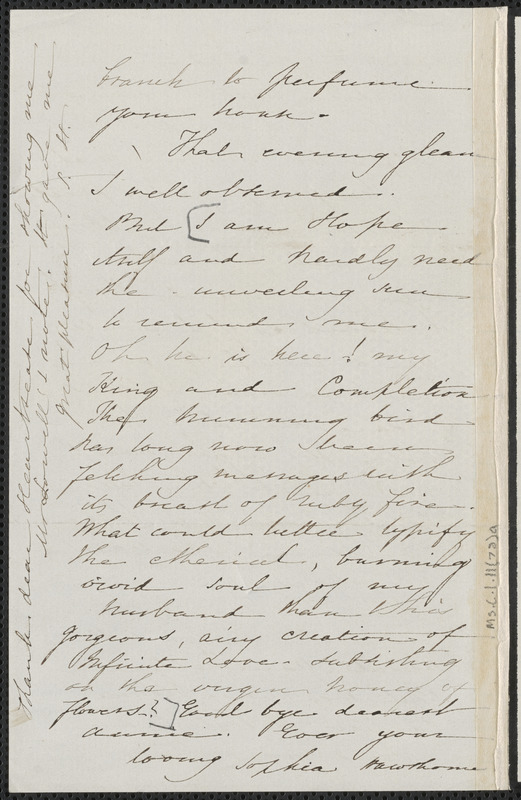 branch to perfume
your house.
That evening gleam
I well observed.
But [I am Hope
itself and hardly need
the unveiling sun
to remind me.
Oh he is here! my
King and Completion
The humming bird
has long now been
fetching messages with
its breast of ruby fire.
What could better typify
the etherical, burning
vivid soul of my
husband than this
gorgeous, airy creation of
Infinite Love - subsisting
on the virgin honey of
flowers?] Good bye dearest
Annie. Ever your
loving Sophia Hawthorne
Thanks dear Heartsease for showing me
Mr Lowell's note. It gave me
great pleasure. S. H.
Ms.C.1.11(73)a